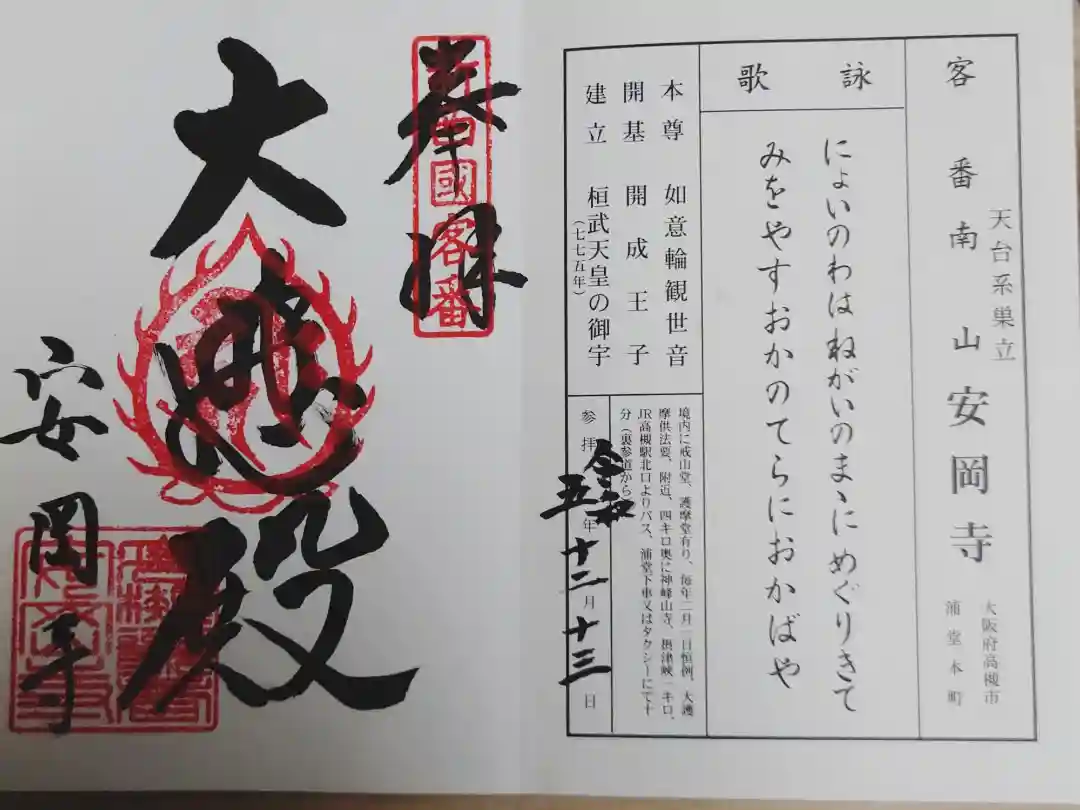 客番 南山 安岡寺
天台系単立
大阪府高槻市
浦堂本町
詠歌
にょいのわはねがいのまゝにめぐりきて
みをやすおかのてらにおかばや
本尊 如意輪観世音
開基 開成王子
建立 桓武天皇の御宇
(七七五年)
境内に戒山堂、護摩堂有り、毎年二月一日恒例、大護
摩供法要、附近、四キロ奥に神峰山寺、摂津峡一キロ、
JR高槻駅北口よりバス、浦堂下車又はタクシーにて十
分(裏参道から)
参拝 令和五年十二月十三日
奉拝
國客番
大悲殿
安岡寺